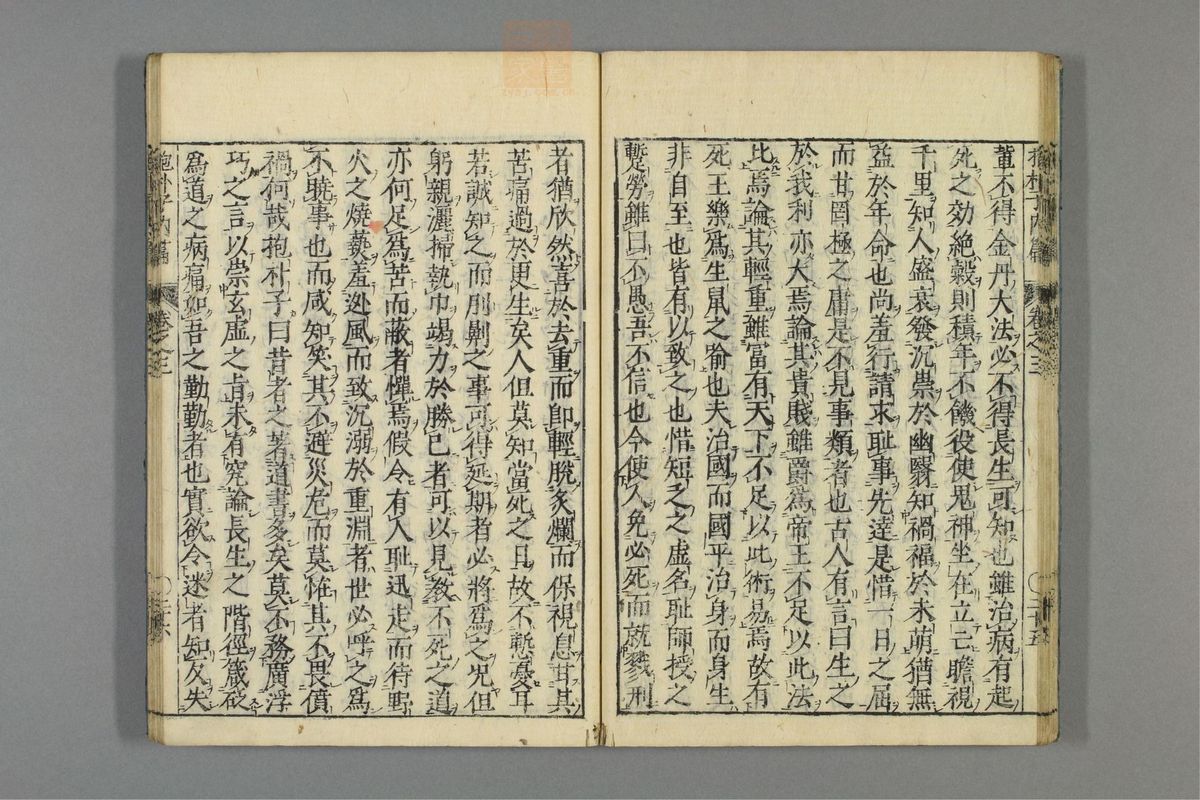 董不得金丹大法必不得長生可知也雖治病有起
死之効絶穀則積年不饑役使鬼神坐在立亡瞻視
千里知人盛衰發沉祟於幽翳知禍福於未萌猶無
益於年命也尚羞行請求耻事先達是惜一日之屈
而甘罔極之庸是不見事類者也古人有言曰生之
於我利亦大焉論其貴賤雖爵爲帝王不足以此法
比焉論其輕重雖冨有天下不足以此術易焉故有
死王樂爲生鼠之喻也夫治國而國平治身而身生
非自至也皆有以致之也惜短乏之虚名耻師授之
蹔勞雖曰不愚吾不信也今使人免必死而就戮刑
抱朴子内篇 卷之三 〇二十五
者猶欣然喜於去重而即輕脫炙爛而保視息甘其
苦痛過於更生矣人但莫知當死之日故不慙憂耳
若誠知之而刖劓之事可得延期者必將爲之况但
躬親灑掃執巾竭力於勝已者可以見教不死之道
亦何足爲苦而蔽者憚焉假令有人耻迅走而待野
火之燒爇羞逃風而致沉溺於重淵者世必呼之爲
不曉事也而咸知笑其不避災危而莫恠其不畏僨
禍何哉抱朴子曰昔者之著道書多矣莫不務廣浮
巧之言以崇玄虚之旨未有究論長生之階徑箴砭
爲道之病痛如吾之勤勤者也實欲令迷者知反失
抱朴子内篇 卷之三 〇二十六